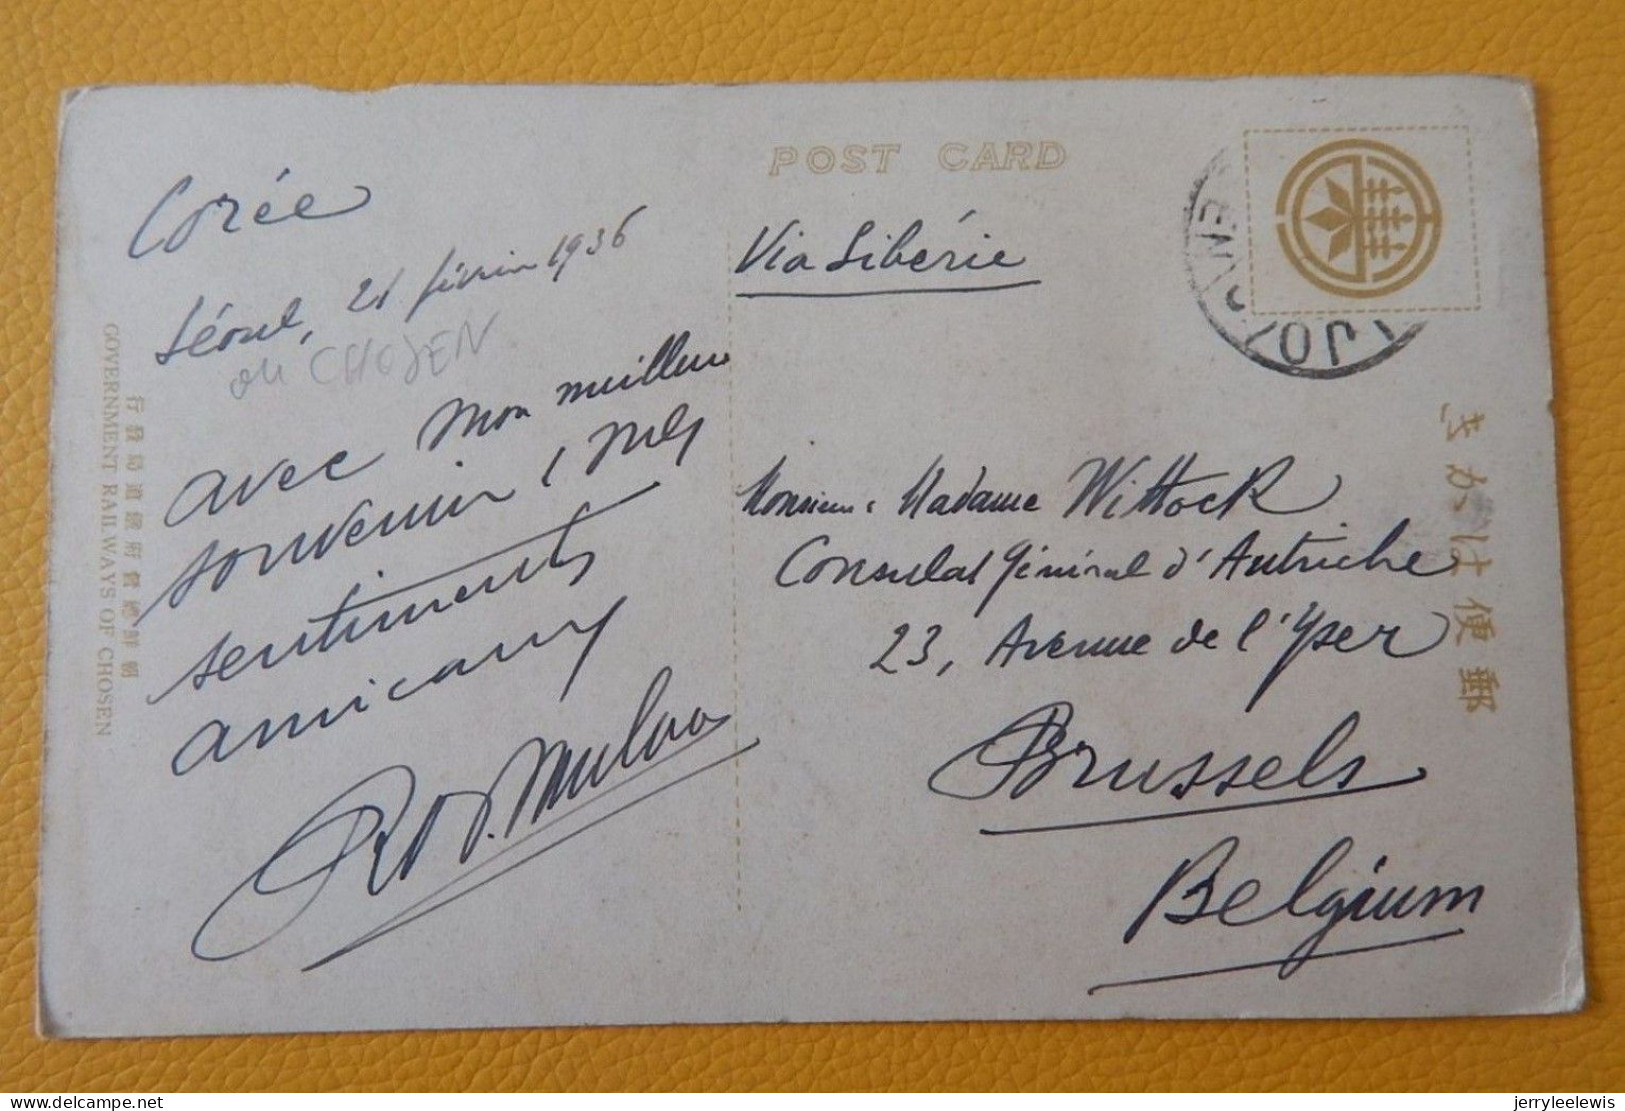 POST CARD
Corée
Séoul, 21 février 1936
ou CHOSEN
avec mon meilleur
souvenir, mes
sentiments
amicaux
Via Sibérie
Monsieur & Madame Wittock
Consulat Général d'Autriche
23, Avenue de l'Yser
Brussels
Belgium
きかは便郵
行發局道鐵府督總鮮朝
GOVERNMENT RAILWAYS OF CHOSEN
jerryleelewis